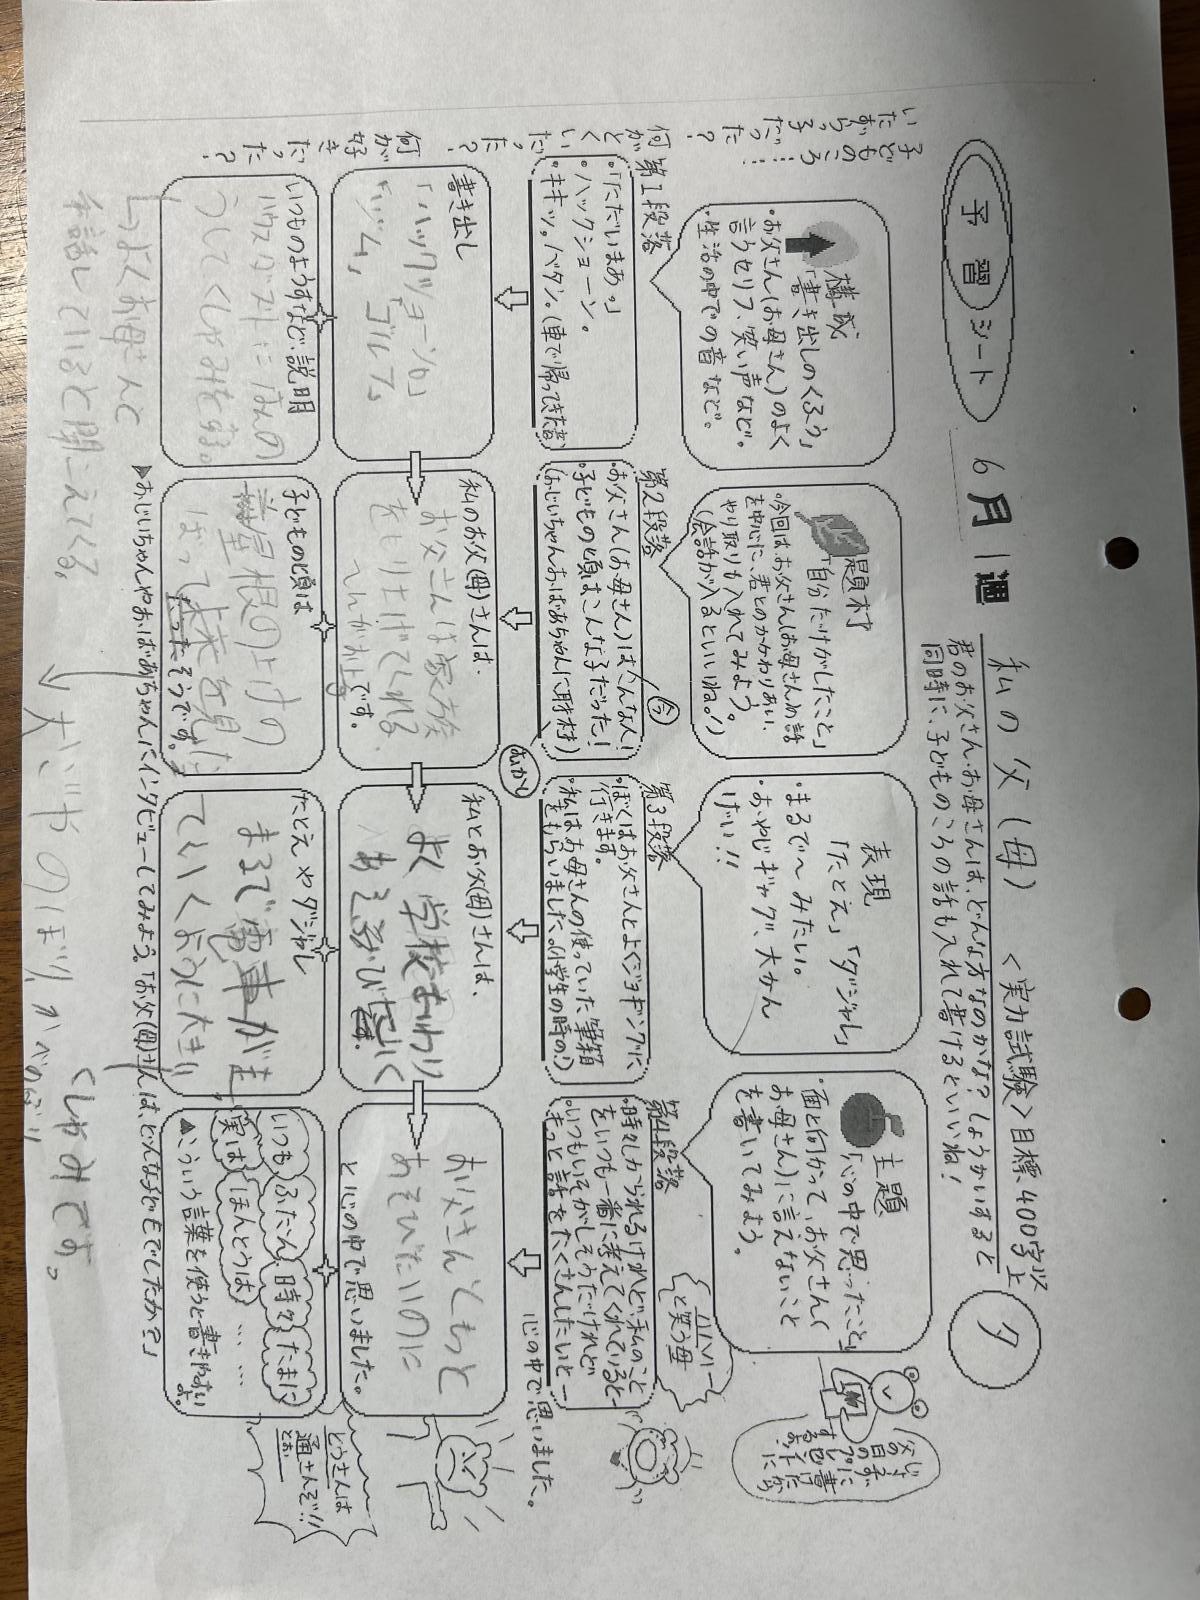 予習シート
6月1週
私の父(母) <実力試験>目標400字以上
君のお父さん、お母さんは、どんな方なのかな?しょうかいすると
同時に、子どものころの話も入れて書けるといいね!
夕
構成
「書き出しのくふう」
・お父さん(お母さん)のよく
言うセリフ、笑い声など。
・生活の中での音など。
題材
「自分だけがしたこと」
・今回はお父さん(お母さん)の話
を中心に、君とのかかわりあい、
やり取りも入れてみよう。
(会話が入るといいね。)
表現
「たとえ」「ダジャレ」
・まるで〜みたい。
・おやじギャグ、大かん
げい!!
主題
「心の中で思ったこと」
・面と向かって、お父さん(
お母さん)に言えないこと
を書いてみよう。
子どものころ
いたずらっ子だった…
何がとくいだった?
何が好きだった?
第1段落
・「ただいまあ。」
・ハックショーン。
・キキッ。バタン。(車で帰ってきた音)
第2段落
・お父さん(お母さん)はこんな人!
・子どもの頃はこんな子だった!
(おじいちゃんおばあちゃんに取材)
今
むかし
第3段落
・ぼくはお父さんとよくジョギングに
行きます。
・私はお母さんの使っていた筆箱
をもらいました。(小学生の時の!)
第4段落
・時々しかられるけれど、私のこと
をいつも一番に考えてくれていると―
・いつもいそがしそうだけれど
もっと話をたくさんしたいと―
心の中で思いました。
ハハハー
と笑う母
書き出し
「ハックッションッ」
「ゴルフ」
私のお父(母)さんは、
お父さんは家族
をもり上げてくれる
です。
私とお父(母)さんは、
よく学校おわり
あそびに行く
お父さんともっと
あそびたいのに
と心の中で思いました。
いつものようすなど説明
ハウスダストにはんの
うしてくしゃみをする。
子どもの頃は
屋根の上にの
ぼって
を見た
だったそうです。
たとえやダジャレ
まるで電車が走
ていくように大きい
いつも ふだん 時々 たまに
実は ほんとうは ……
▲こういう言葉を使うと書きやすい
よ。
とうさんは
通さんぞ!!
とお
▶おじいちゃんやおばあちゃんにインタビューしてみよう。「お父(母)さんはどんな子どもでしたか?」
└→よくお母さんと
電話していると聞こえてくる。
くしゃみです。